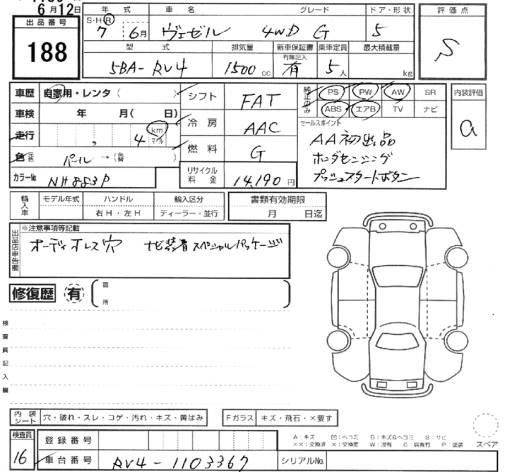 6月12日
出品番号
188
年式 車名 グレード ドア・形状
S・H・R 7 6月 ヴェゼル 4WD G 5
型式 排気量 新車保証書 乗車定員 最大積載量
有無記入
5BA-RV4 1500cc 有 5人 kg
評価点
S
車歴 自家用・レンタ( )
車検 年 月( 日)
走行 4 km マイル
色 パール→( )
カラーNo NH883P
シフト FAT
冷房 AAC
燃料 G
リサイクル料金 14,190円
PS PW AW SR
ABS エアB TV ナビ
セールスポイント
AA初出品
ホンダセンシング
プッシュスタートボタン
内装評価
a
輸入車 モデル年式 ハンドル 輸入区分
右H・左H ディーラー・並行
書類有効期限
月 日迄
※注意事項等記載
オーディオレス穴 ナビ装着スペシャルパッケージ
修復歴 有 箇所
検査員記入欄
内装シート 穴・破れ・スレ・コゲ・汚れ・キズ・黄ばみ
Fガラス キズ・飛石・×要す
検査員
16
登録番号
車台番号 RV4-1103367
シリアルNo.
スペア